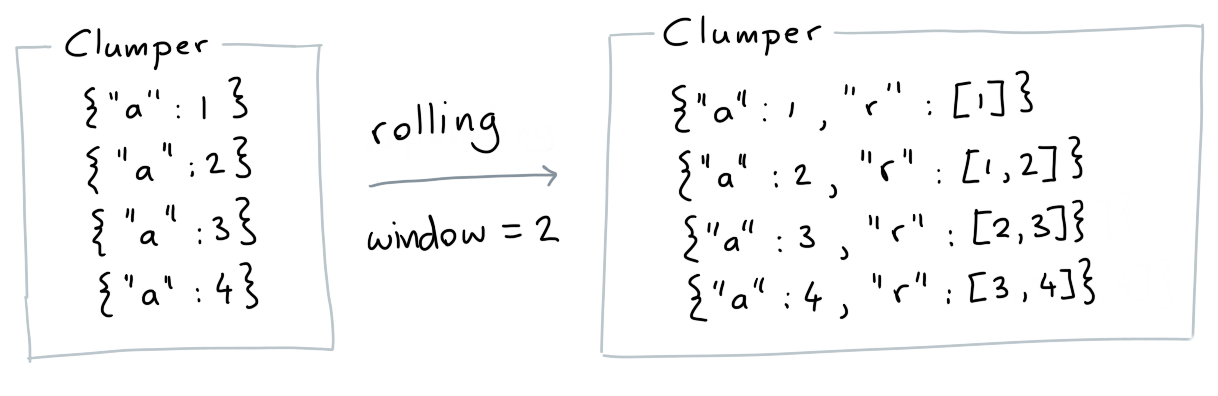 Clumper
{"a" : 1 }
{ "a" : 2 }
{ "a" : 3 }
{ "a" : 4 }
rolling
window = 2
Clumper
{"a" : 1 , "r" : [1] }
{"a" : 2 , "r" : [1, 2] }
{"a" : 3 , "r" : [2, 3] }
{"a" : 4 , "r" : [3, 4] }